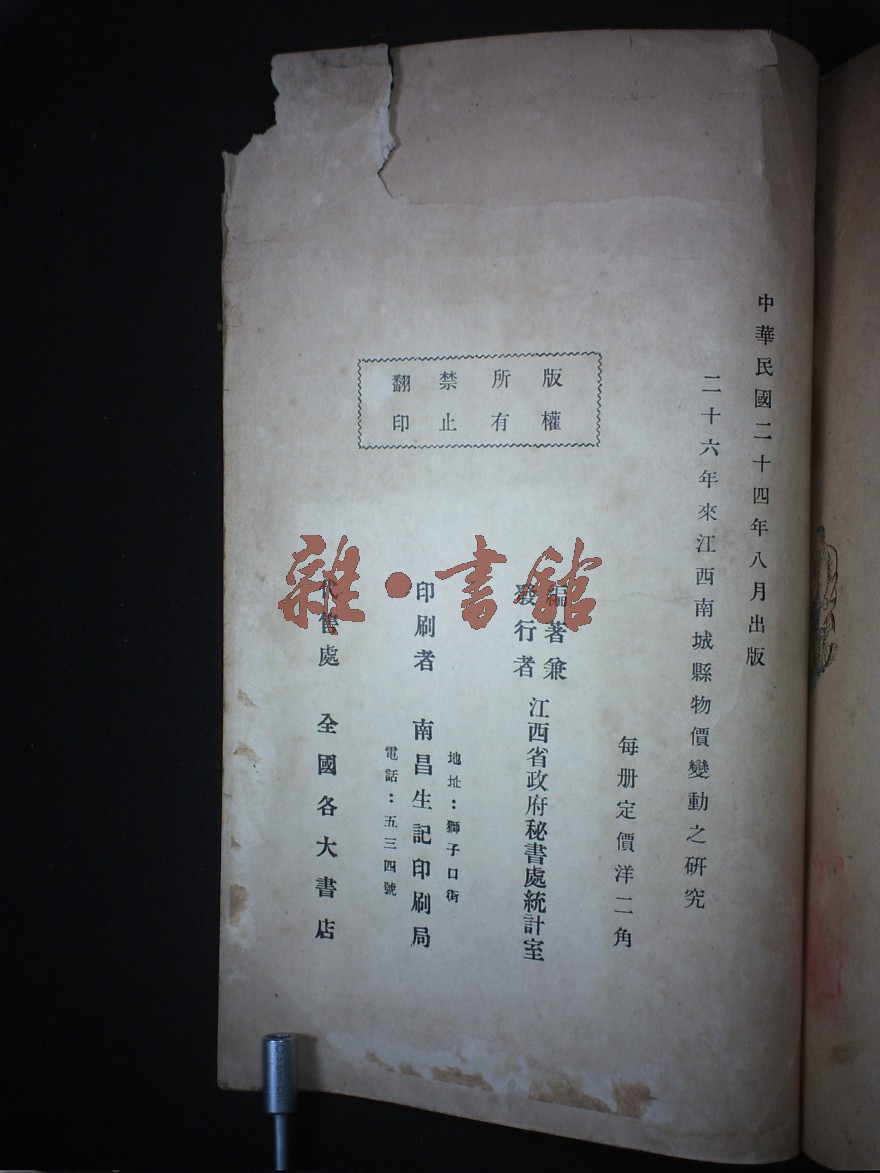 中華民國二十四年八月出版
二十六年來江西南城縣物價變動之研究
每册定價洋二角
編著兼
發行者
江西省政府秘書處統計室
地址：獅子口街
印刷者　南昌生記印刷局
電話：五三四號
代售處　全國各大書店
版權
所有
禁止
翻印
雜·書館